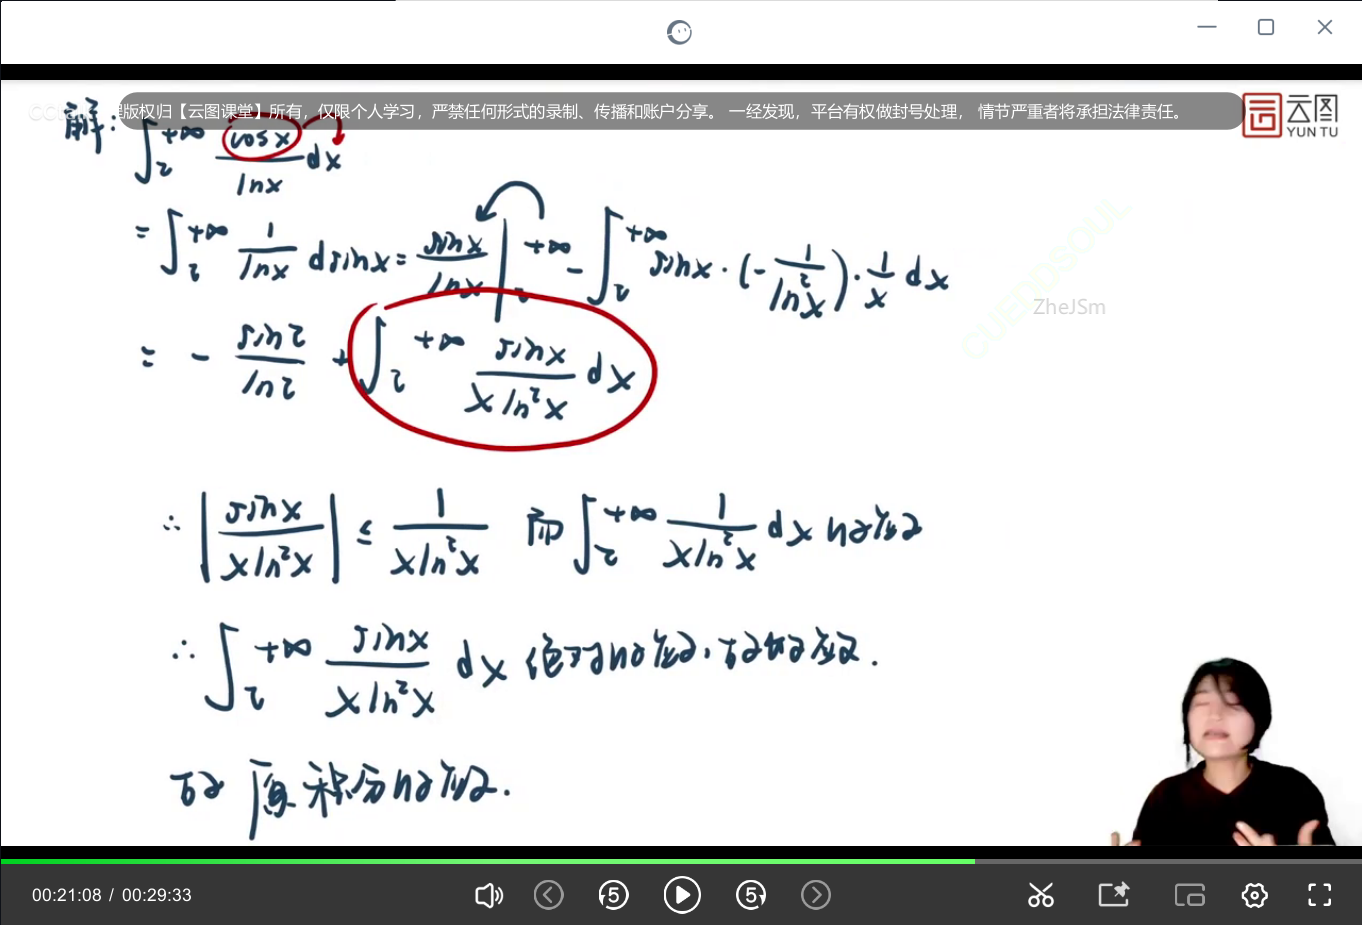 版权归【云图课堂】所有，仅限个人学习，严禁任何形式的录制、传播和账户分享。 一经发现，平台有权做封号处理， 情节严重者将承担法律责任。
云图
YUN TU
解：∫₂^{+∞} cosx/lnx dx
= ∫₂^{+∞} 1/lnx dsinx = sinx/lnx |₂^{+∞} - ∫₂^{+∞} sinx·(-1/ln²x)·1/x dx
= - sin2/ln2 + ∫₂^{+∞} sinx/(xln²x) dx
ZheJSm
∵ |sinx/(xln²x)| ≤ 1/(xln²x) 而 ∫₂^{+∞} 1/(xln²x) dx 收敛
∴ ∫₂^{+∞} sinx/(xln²x) dx 绝对收敛，故收敛.
故原积分收敛.
00:21:08 / 00:29:33
5 5